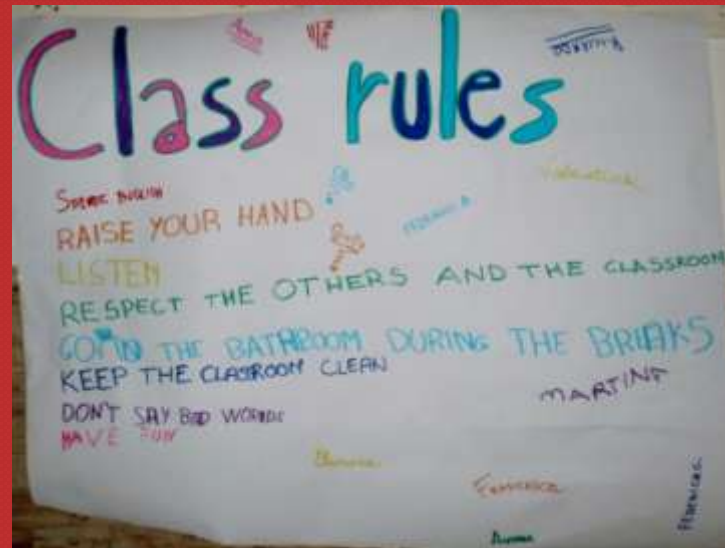 Class rules
Valentina
SPEAK ENGLISH
RAISE YOUR HAND
LISTEN
RESPECT THE OTHERS AND THE CLASSROOM
GO IN THE BATHROOM DURING THE BREAKS
KEEP THE CLASSROOM CLEAN
MARTINA
DON'T SAY BAD WORDS
HAVE FUN
Francesca